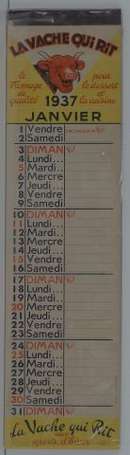 LA VACHE QUI RIT
le fromage de qualité
pour le dessert et la cuisine
1937
JANVIER
1 Vendre
2 Samedi
3 DIMAN
4 Lundi...
5 Mardi..
6 Mercre
7 Jeudi..
8 Vendre
9 Samedi
10 DIMAN
11 Lundi...
12 Mardi..
13 Mercre
14 Jeudi...
15 Vendre
16 Samedi
17 DIMAN
18 Lundi...
19 Mardi..
20 Mercre
21 Jeudi...
22 Vendre
23 Samedi
24 DIMAN
25 Lundi...
26 Mardi..
27 Mercre
28 Jeudi...
29 Vendre
30 Samedi
31 DIMAN
La Vache qui Rit